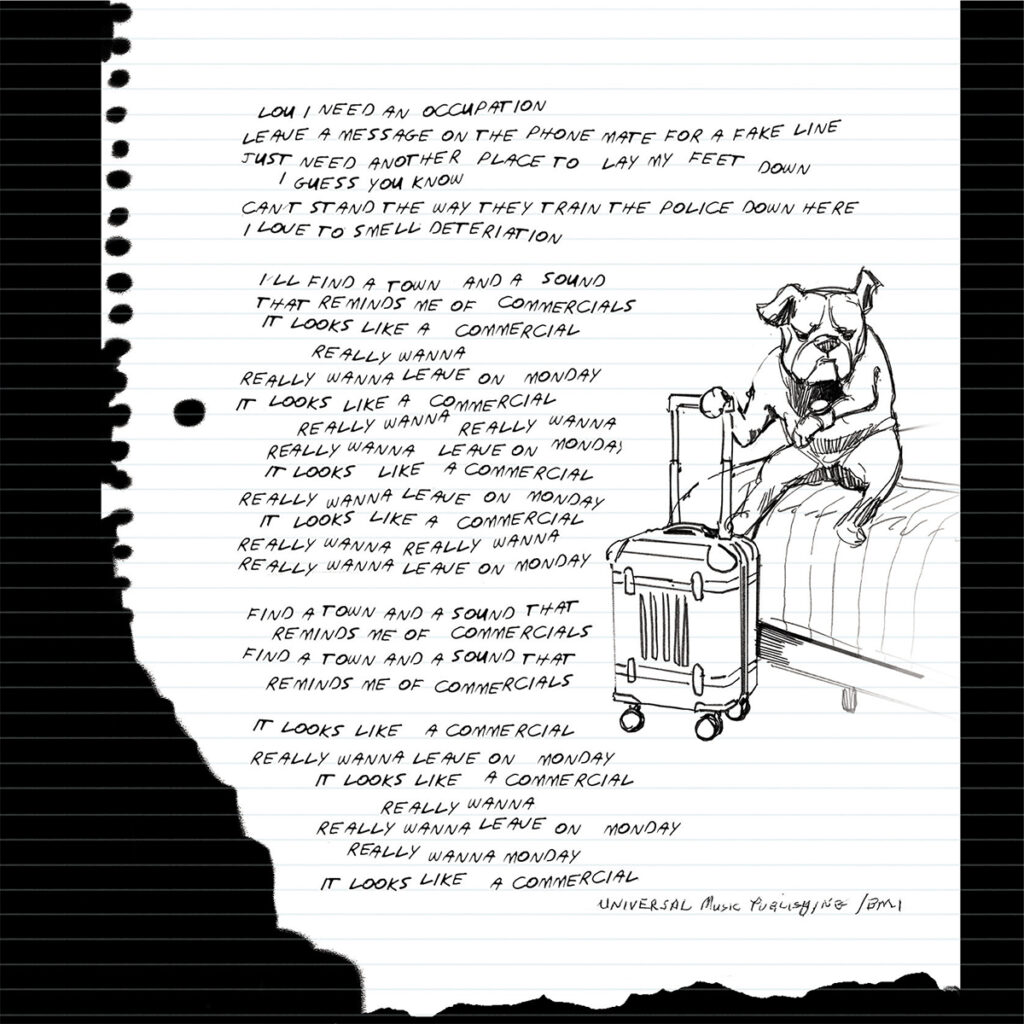 LOU I NEED AN OCCUPATION
LEAVE A MESSAGE ON THE PHONE MATE FOR A FAKE LINE
JUST NEED ANOTHER PLACE TO LAY MY FEET DOWN
I GUESS YOU KNOW
CANT STAND THE WAY THEY TRAIN THE POLICE DOWN HERE
I LOVE TO SMELL DETERIATION
I'LL FIND A TOWN AND A SOUND
THAT REMINDS ME OF COMMERCIALS
IT LOOKS LIKE A COMMERCIAL
REALLY WANNA
REALLY WANNA LEAVE ON MONDAY
IT LOOKS LIKE A COMMERCIAL
REALLY WANNA REALLY WANNA
REALLY WANNA LEAVE ON MONDAY
IT LOOKS LIKE A COMMERCIAL
REALLY WANNA LEAVE ON MONDAY
IT LOOKS LIKE A COMMERCIAL
REALLY WANNA REALLY WANNA
REALLY WANNA LEAVE ON MONDAY
FIND A TOWN AND A SOUND THAT
REMINDS ME OF COMMERCIALS
FIND A TOWN AND A SOUND THAT
REMINDS ME OF COMMERCIALS
IT LOOKS LIKE A COMMERCIAL
REALLY WANNA LEAVE ON MONDAY
IT LOOKS LIKE A COMMERCIAL
REALLY WANNA
REALLY WANNA LEAVE ON MONDAY
REALLY WANNA MONDAY
IT LOOKS LIKE A COMMERCIAL
UNIVERSAL MUSIC PUBLISHING /BMI